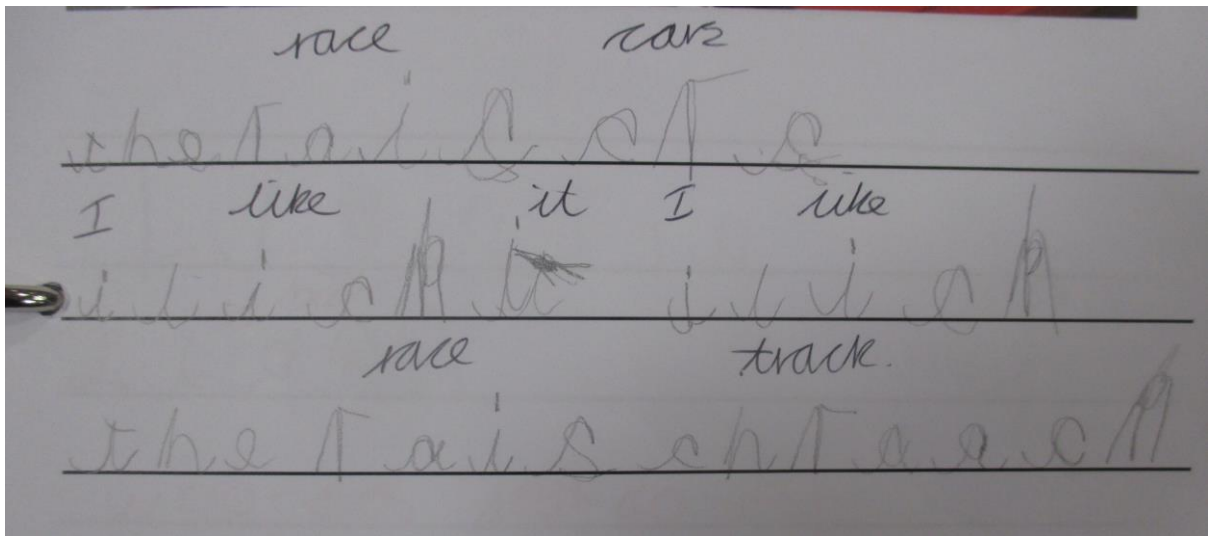 race cars
the r a i s c r s
I like it I like
i l i c k it i l i c k
race track.
the r a i s c h r a a c k